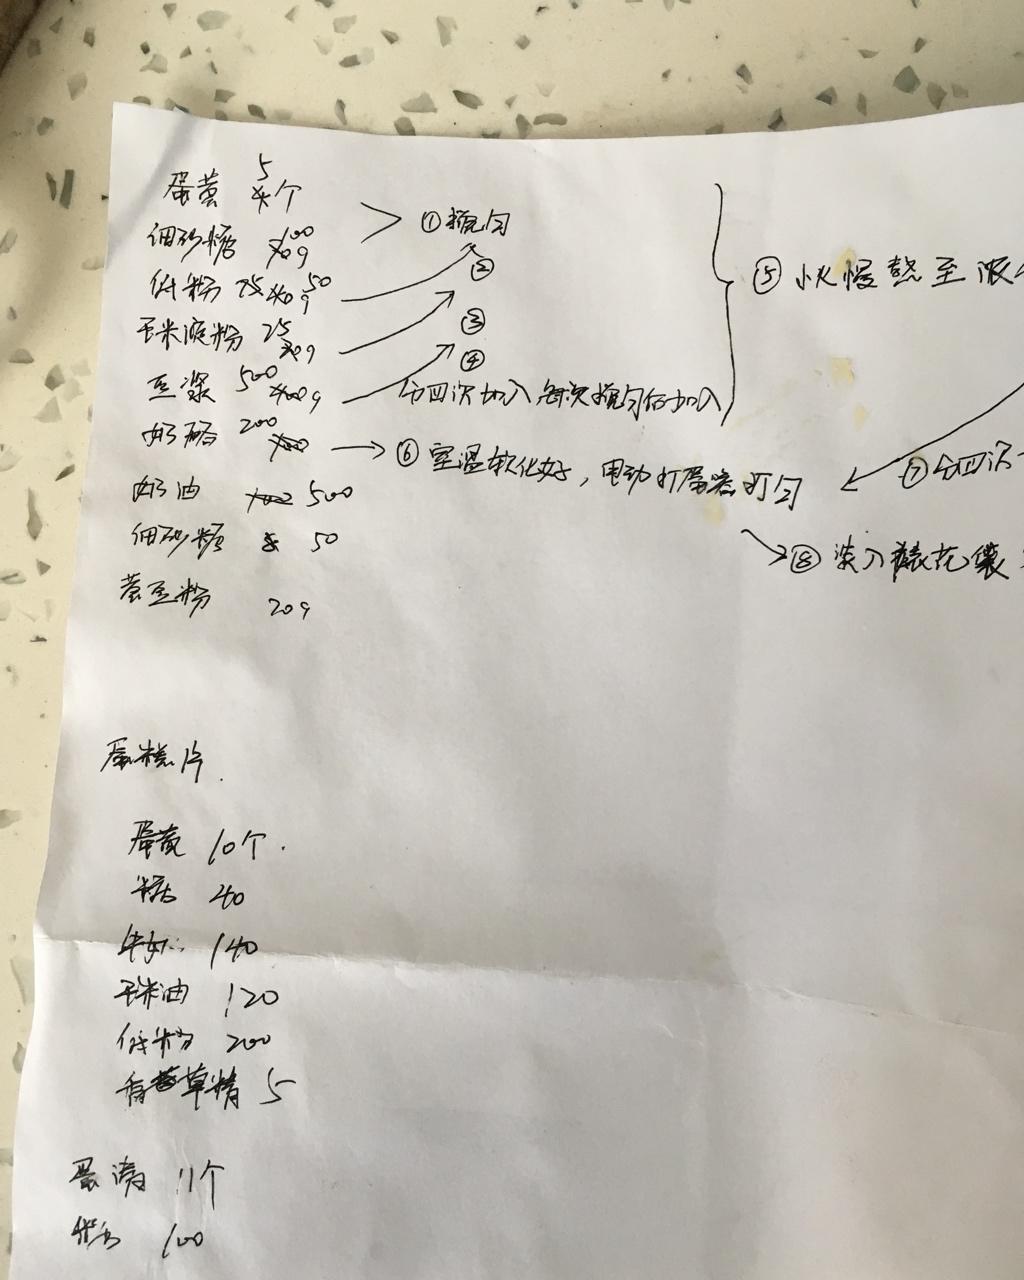 蛋黄 5个
细砂糖 100g
①搅匀
低粉 50g
②
玉米淀粉 25g
③
豆浆 500g
④
分四次加入每次搅匀后加入
⑤小火慢熬至浓
奶酪 200
⑥室温软化好，电动打蛋器打匀
⑦分四次
奶油 500
细砂糖 50
⑧装入裱花袋
黄豆粉 20g
蛋糕片
蛋黄 10个
糖 40
牛奶 140
玉米油 120
低粉 200
香草精 5
蛋清 11个
糖 100